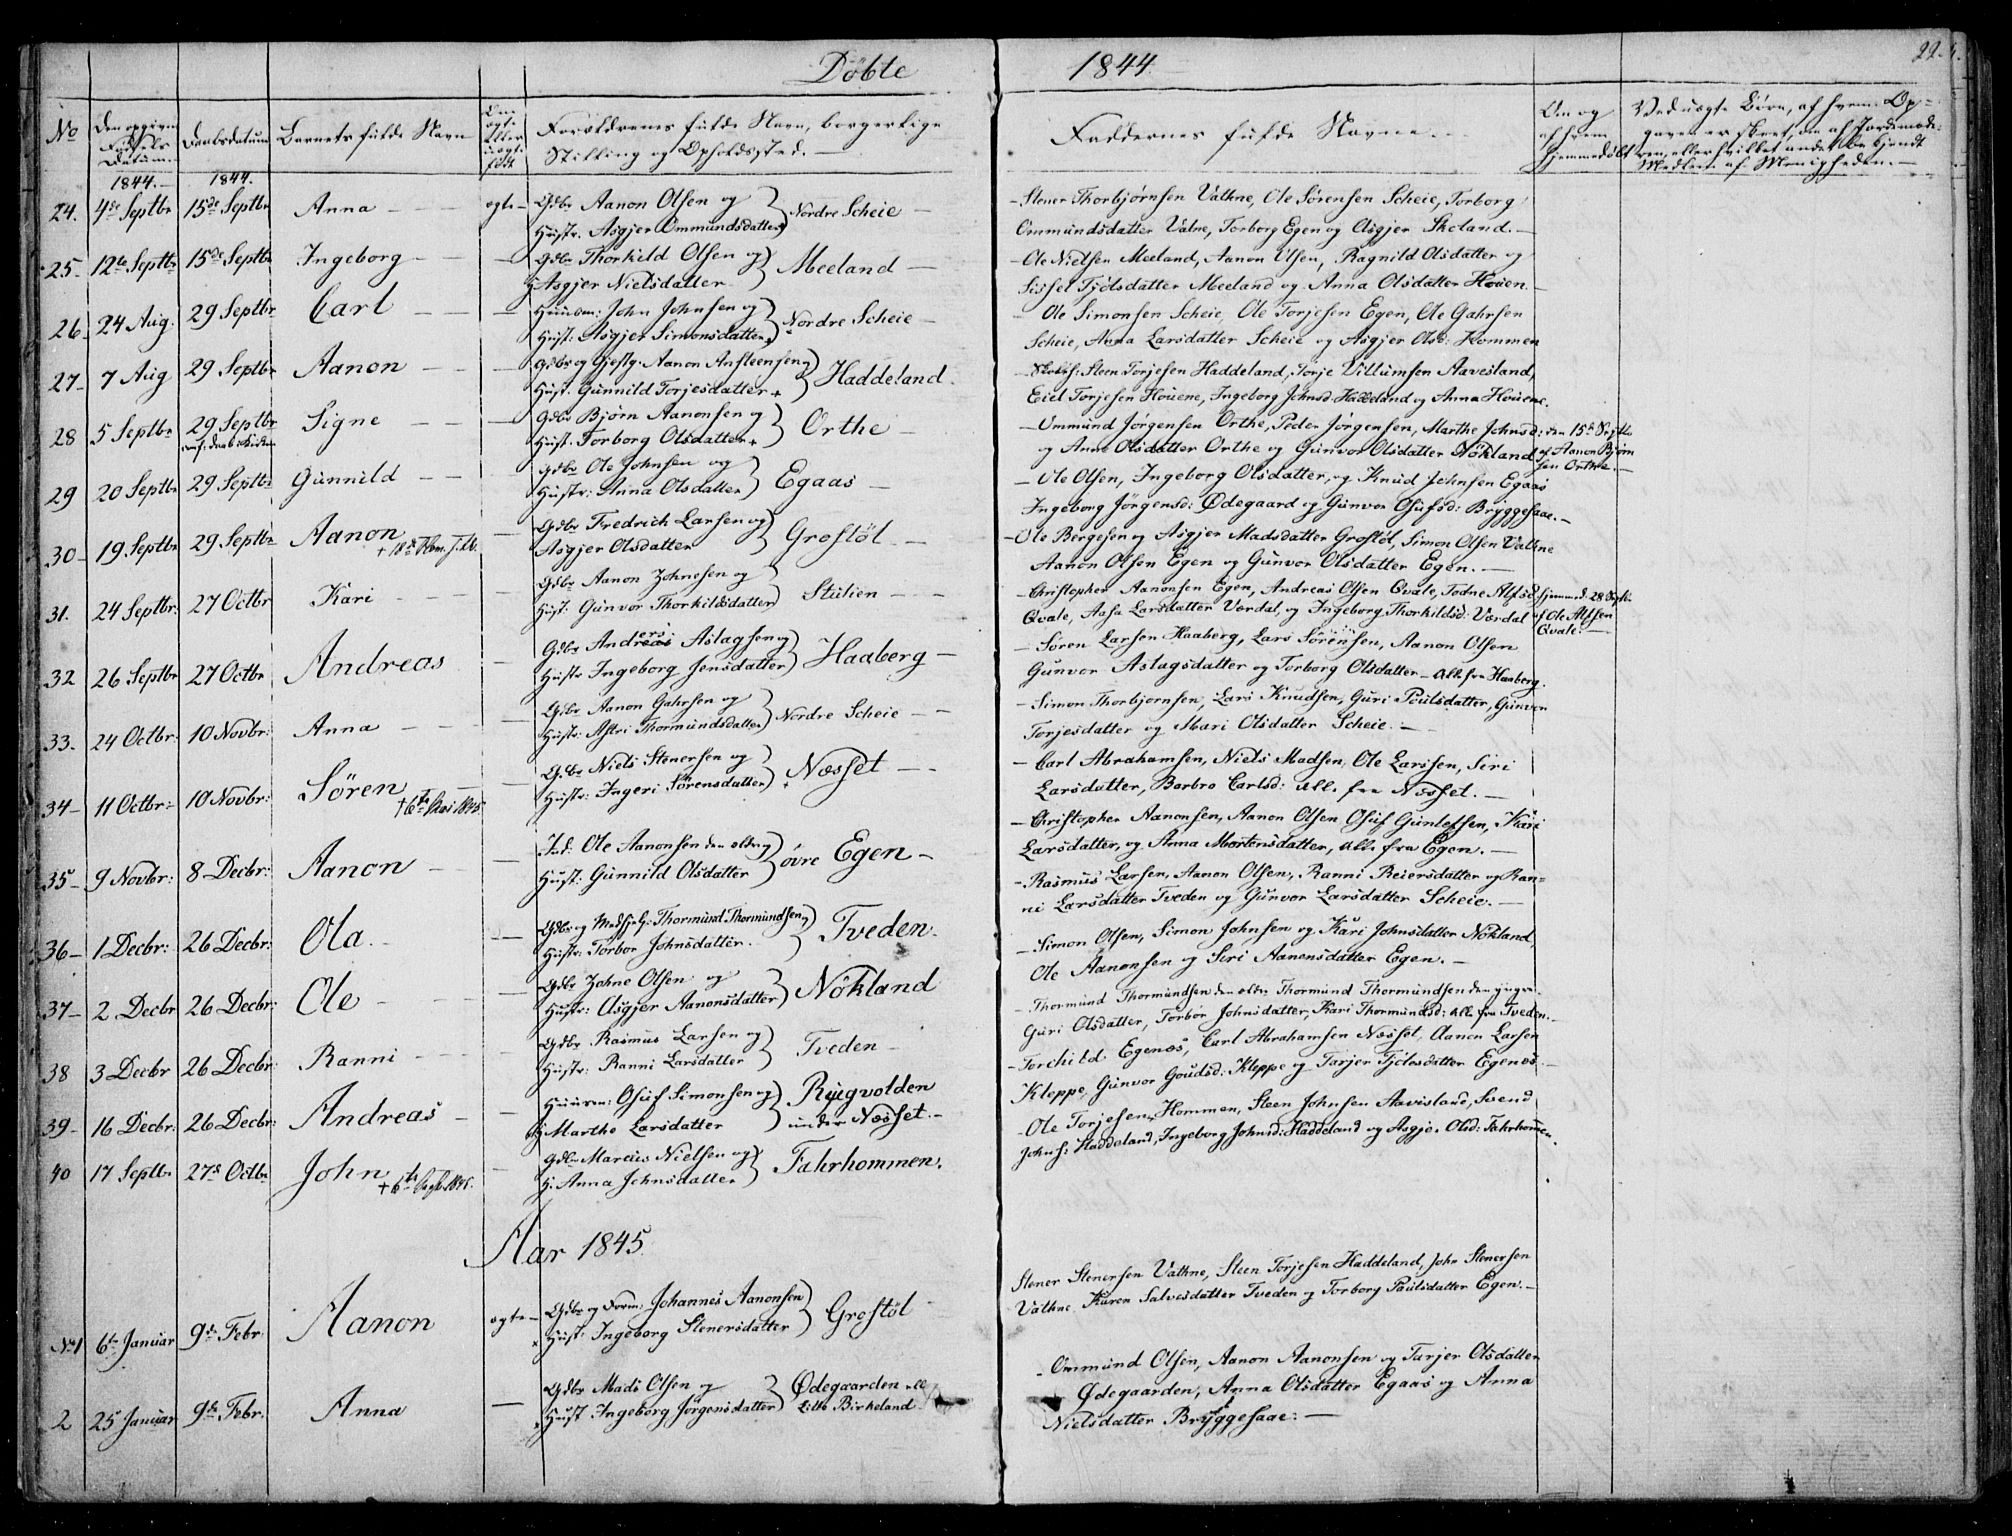 Döbte 1844
22.
No
Den opgivne Fødsels Datum.
Daabsdatum
Barnets fulde Navn
Om ægte eller uægte født
Forældrenes fulde Navn, borgerlige Stilling og Opholdssted. —
Faddernes fulde Navne. —
Om og af hvem hjemmedøbt
Ved uægte Børn, af hvem Op-
gaven er skeet, om af Jordemode-
ren, eller hvilket andet bekjendt
Medlem af Menigheden. —
1844. — 1844.
24. 4de Septbr 15de Septbr Anna — ægte — Gdbr Aanon Olsen og
Hustr. Asgjer Ommundsdatter } Nordre Scheie —
— Stener Thorbjørnsen Vathne, Ole Sörensen Scheie, Torborg
Ommundsdatter Vatne, Torborg Egen og Asgjer Skoland. —
25. 12te Septbr 15de Septbr Ingeborg — — Gdbr Thorkild Olsen og
H. Asgjer Nielsdatter } Meeland —
— Ole Nielsen Meeland, Aanon Olsen, Ragnild Olsdatter og
Sissel Tjölsdatter Meeland og Anna Olsdatter Houen. —
26. 24 Aug. 29 Septbr Carl — — Huusm: John Johnsen og
Hust: Asgjer Simonsdatter } Nordre Scheie —
— Ole Simonsen Scheie, Ole Torjesen Egen, Ole Gahrsen
Scheie, Anna Larsdatter Scheie og Asgjer Olsd: Hommen
27. 7 Aug 29 Septbr Aanon — — Gdbr og Gjestg. Aanon Ansteensen og
Hust. Gunnild Torjesdatter } Haddeland.
Steen Torjesen Haddeland, Torje Villumsen Aavesland,
Eiel Torjesen Houene, Ingeborg Johnsd. Haddeland og Anna Houene.
28 5 Septbr 29 Septbr Signe — — Gdbr Björn Aanonsen og
Hust: Torborg Olsdatter } Orthe
— Ommund Jörgensen Orthe, Peder Jörgensen, Marthe Johnsd:
og Anne Olsdatter Orthe og Gunvor Olsdatter Nökland
den 15de Septbr
af Aanon Bjørn
sen Orthe. —
29 20 Septbr 29 Septbr Gunnild — — Gdbr Ole Johnsen og
Hustr: Anna Olsdatter } Egaas —
— Ole Olsen, Ingeborg Olsdatter, og Knud Johnsen Egaas
Ingeborg Jörgensd: Ødegaard og Gunvor Osufsd: Bryggesaae. —
30 — 19 Septbr 29 Septbr Aanon — Gdbr Fredrich Larsen og
Asgjer Olsdatter } Grostöl —
— Ole Bergesen og Asgjer Madsdatter Grostöl, Simon Olsen Vathne
Aanon Olsen Egen og Gunvor Olsdatter Egen. —
31. 24 Septbr. 27 Octbr Kari — — Gdbr Aanon Zohnesen og
Hust: Gunvor Thorkildsdatter } Stulien —
— Christopher Aanonsen Egen, Andreas Olsen Qvale, Todne Alfsd:
Qvale, Aasa Larsdatter Værdal, og Ingeborg Thorkildsd: Værdal
hjemmed. 28 Septbr.
af Ole Alfsen
Qvale. —
32 26 Septbr 27 Octbr Andreas — Gdbr Anders Aslagsen og
Hustr Ingeborg Jensdatter } Haaberg —
— Sören Larsen Haaberg, Lars Sörensen, Aanon Olsen
Gunvor Aslagsdatter og Torborg Olsdatter — alle fra Haaberg.
33. 24 Octbr: 10 Novbr: Anna — — Gdbr Aanon Gahrsen og
Hustr: Astri Thormundsdatter } Nordre Scheie —
— Simon Thorbjornsen, Lars Knudsen, Guri Poulsdatter, Gunvor
Torjesdatter og Mari Olsdatter Scheie. —
34 — 11 Octbr: 10 Novbr: Sören — † 6te 1845. Gdbr Niels Stenersen og
Hustr: Ingeri Sörensdatter } Næsset —
— Carl Abrahamsen, Niels Madsen, Ole Larssen, Siri
Larsdatter, Barbro Carlsd: alle fra Næsset. —
35 — 9 Novbr: 8 Decbr: Aanon — — Ind: Ole Aanonsen den eldre og
Hust: Gunnild Olsdatter } övre Egen —
— Christopher Aanonsen, Aanon Olsen Osuf Gunleksen, Kari
Larsdatter, og Anna Mortensdatter, alle fra Egen. —
36 — 1 Decbr: 26 Decbr: Ola. — — Gdbr og Medhjelp: Thormund Thormundsen og
Hustr: Torbor Johnsdatter. } Tveden.
— Rasmus Larsen, Aanon Olsen, Ranni Reiersdatter og Ran=
ni Larsdatter Tveden og Gunvor Larsdatter Scheie. —
37 — 2 Decbr 26 Decbr: Ole — — Gdbr Zohne Olsen og
Hustr: Asgjer Aanonsdatter } Nökland
— Simon Olsen, Simon Johnsen og Kari Johnsdatter Nökland
Ole Aanonsen og Siri Aanonsdatter Egen. —
38 3 Decbr 26 Decbr: Ranni — — Gdbr Rasmus Larsen og
Hustr: Ranni Larsdatter } Tveden —
— Thormund Thormundsen den eldre, Thormund Thormundsen den yngre.
Guri Olsdatter, Torbor Johnsdatter, Kari Thormundsd: alle fra Tveden. —
39 — 16 Decbr: 26 Decbr: Andreas — — Huusm: Osuf Simonsen og
H. Marthe Larsdatter } Rugvolden
under Næsset. —
— Torchild Egenæs, Carl Abrahamsen Næsset, Aanon Larsen
Kleppe, Gunvor Goudsd: Kleppe og Tarjer Tjölesdatter Egenæs. —
40 17 Septbr. 27de Octbr John † 6te Septbr 1845. — Gdbr Marcus Nielsen og
H. Anna Johnsdatter } Fahrhommen.
— Ole Torjesen Hommen, Steen Johnsen Aavisland, Svend
Johns: Haddeland, Ingeborg Johnsd: Haddeland og Asgje. Olsd: Fahrhommen.
Aar 1845.
No 1 6te Januar 9de Febr: Aanon ægte — Gdbr og Form: Johannes Aanonsen
Hust: Ingeborg Stenersdatter } Grostöl
Stener Stenersen Vathne, Steen Torjesen Haddeland, John Stenersen
Vathne, Karen Salvesdatter Tveden og Torborg Paulsdatter Egen. —
2 25 Januar 9de Febr. Anna — Gdbr Mads Olsen og
Hust Ingeborg Jörgensdatter } Ødegaarden ell.
Litle Birkeland
— Ommund Olsen, Aanon Aanonsen og Tarjer Olsdatter
Ødegaarden, Anna Olsdatter Egaas og Anna
Nielsdatter Bryggesaae: —